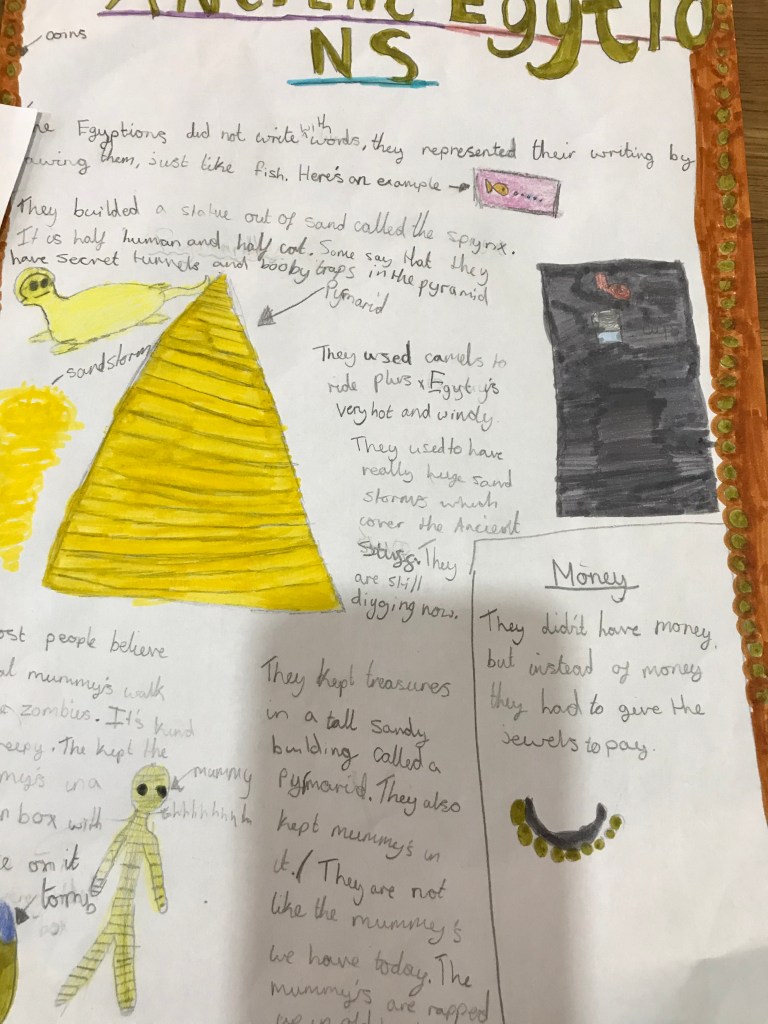 ANCIENT Egyptio
NS
coins
he Egyptions did not write with words, they represented their writing by
them, just like fish. Here's an example
They builded a statue out of sand called the spynx.
It is half human and half cat. Some say that they
have secret tunnels and booby traps in the pyramid
Pyrmarid
sandstorm
They used camels to
ride plus Egyt y's
very hot and windy.
They used to have
really huge sand
storms which
cover the Ancient
They
are still
digging now.
Money
They didn't have money,
but instead of money
they had to geve the
jewels to pay.
ost people believe
mummy's walk
zombies. It's kind
reepy. The kept the
my's in a
box with
on it
tomb
mummy
uhhhhhhhh
They kept treasures
in a tall sandy
building called a
Pyrmarid. They also
kept mummy's in
it. They are not
like the mummy's
we have today. The
mummy's are rapped